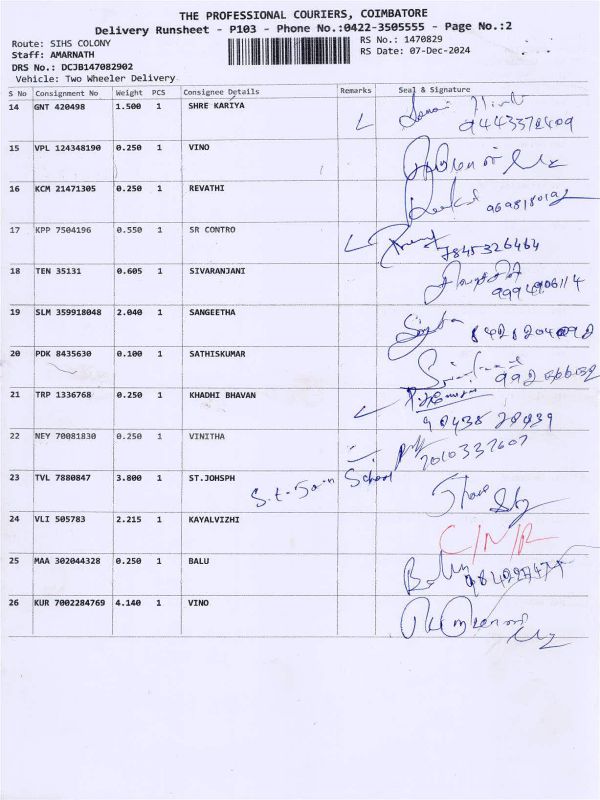 THE PROFESSIONAL COURIERS, COIMBATORE
Delivery Runsheet - P103 - Phone No.:0422-3505555 - Page No.:2
Route: SIHS COLONY RS No.: 1470829
Staff: AMARNATH RS Date: 07-Dec-2024
DRS No.: DCJB147082902
Vehicle: Two Wheeler Delivery
S No Consignment No Weight PCS Consignee Details Remarks Seal & Signature
14 GNT 420498 1.500 1 SHRE KARIYA
15 VPL 124348190 0.250 1 VINO
16 KCM 21471305 0.250 1 REVATHI
17 KPP 7504196 0.550 1 SR CONTRO
7845326464
18 TEN 35131 0.605 1 SIVARANJANI
9994906114
19 SLM 359918048 2.040 1 SANGEETHA
20 PDK 8435630 0.100 1 SATHISKUMAR
21 TRP 1336768 0.250 1 KHADHI BHAVAN
22 NEY 70081830 0.250 1 VINITHA
7010337607
23 TVL 7880847 3.800 1 ST.JOHSPH
School
24 VLI 505783 2.215 1 KAYALVIZHI
C/N/R
25 MAA 302044328 0.250 1 BALU
26 KUR 7002284769 4.140 1 VINO